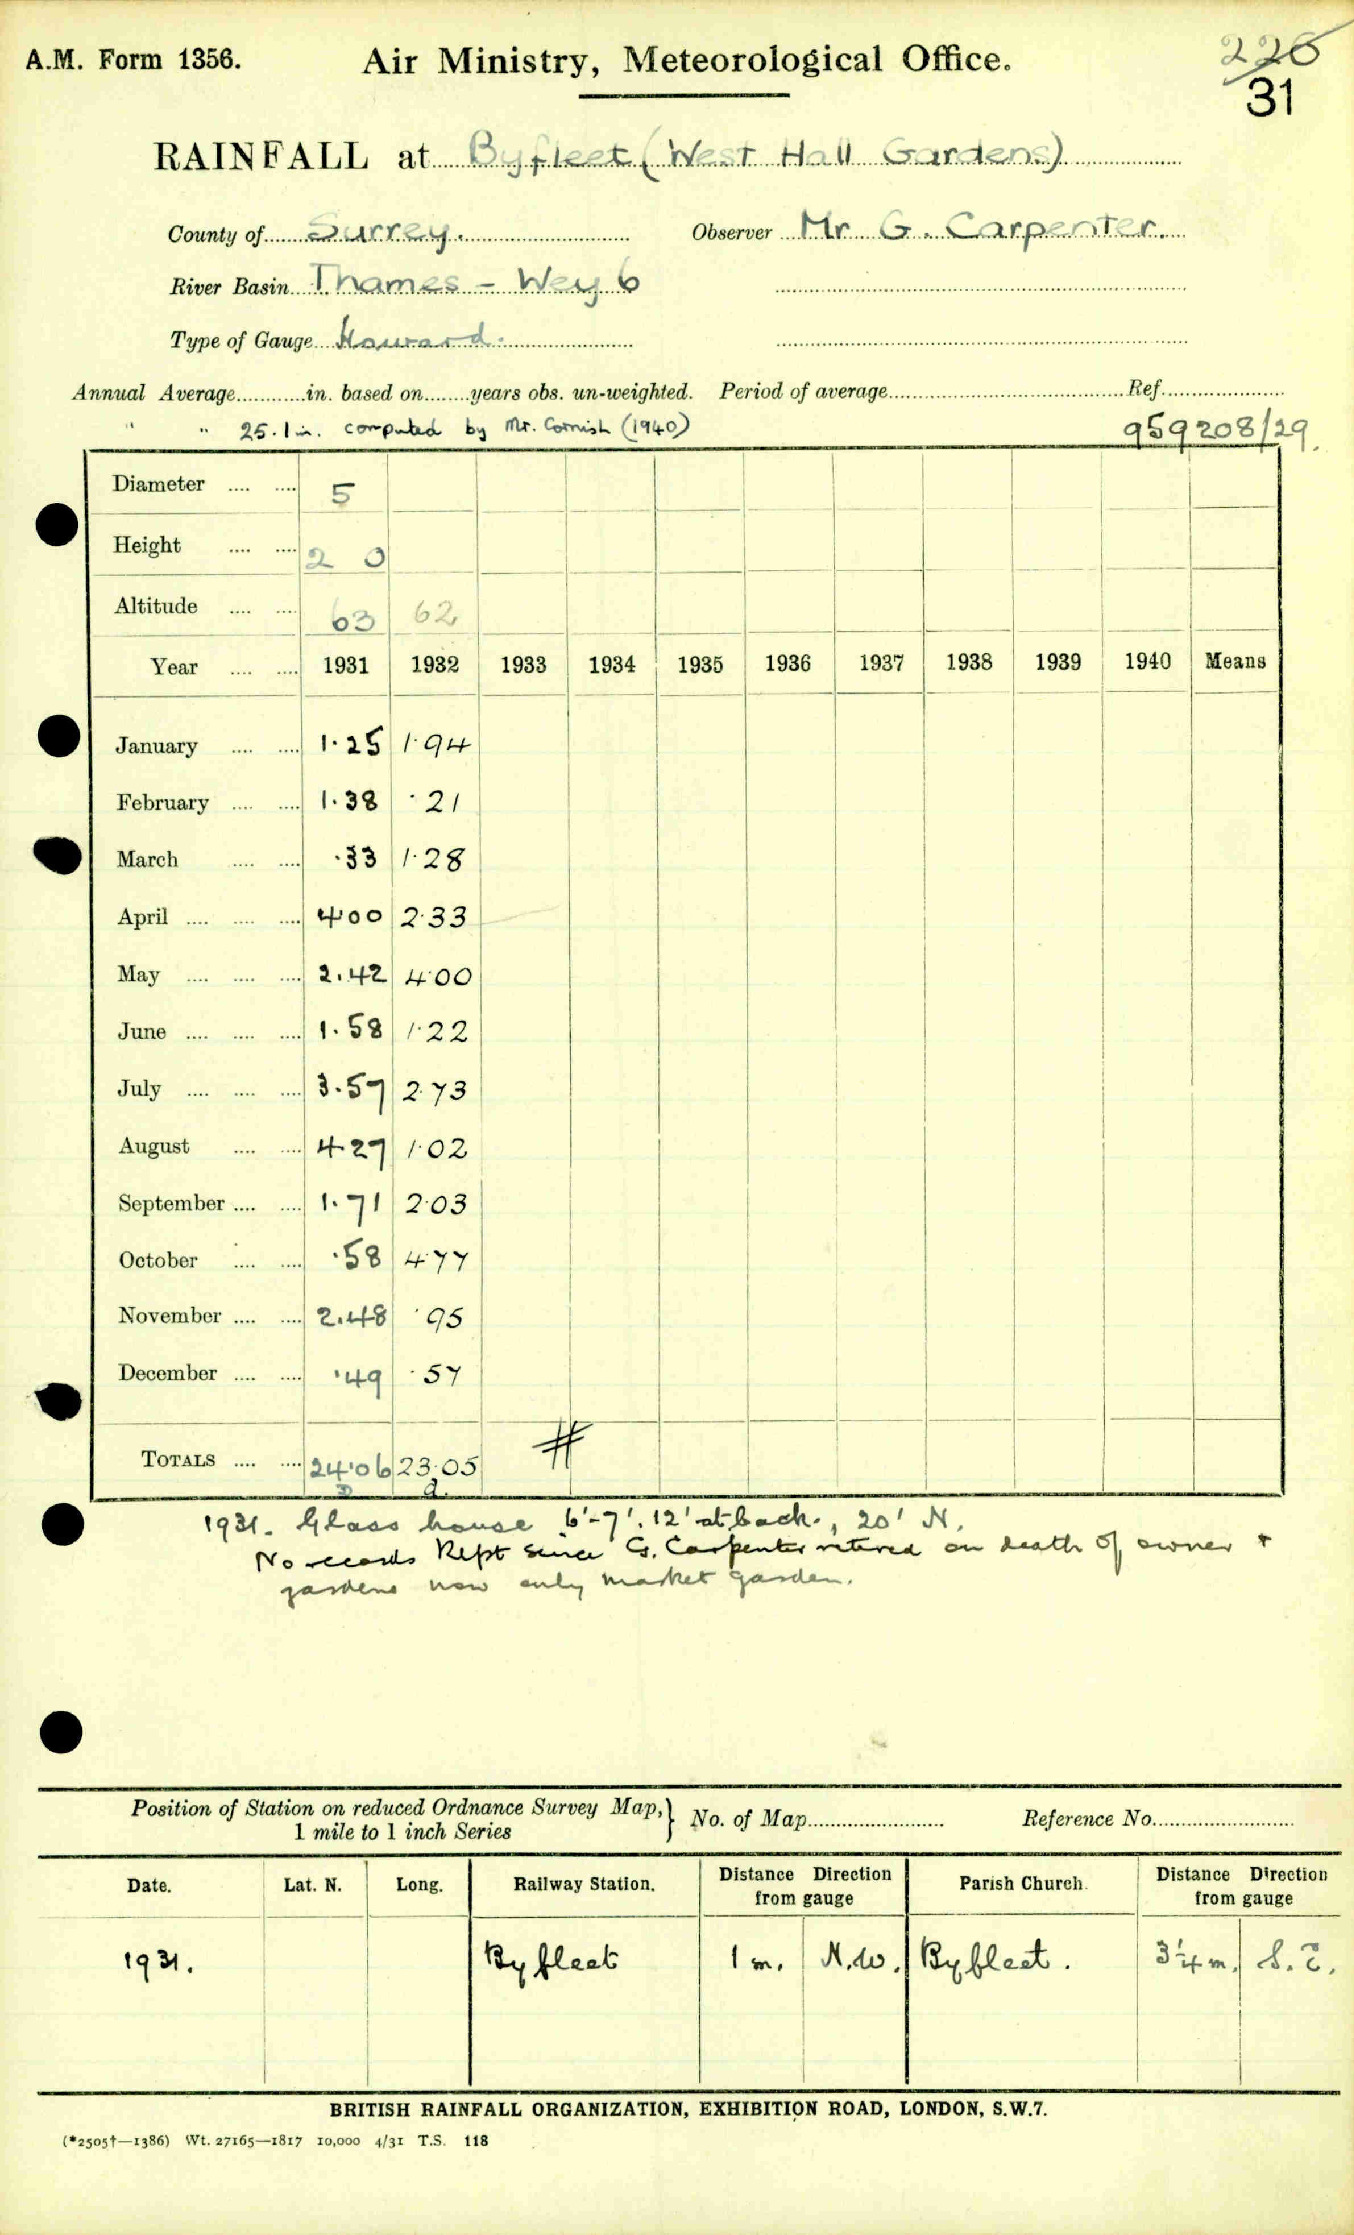 A.M. Form 1356.
Air Ministry, Meteorological Office.
226
31
RAINFALL at Byfleet (West Hall Gardens)
County of Surrey. Observer Mr G. Carpenter.
River Basin Thames - Wey 6
Type of Gauge Howard.
Annual Average in. based on years obs. un-weighted. Period of average Ref.
" " 25.1 in. computed by Mr. Cornish (1940) 959208/29.
Diameter 5
Height 2 0
Altitude 63 62
Year 1931 1932 1933 1934 1935 1936 1937 1938 1939 1940 Means
January 1.25 1.94
February 1.38 .21
March .33 1.28
April 4.00 2.33
May 2.42 4.00
June 1.58 1.22
July 3.57 2.73
August 4.27 1.02
September 1.71 2.03
October .58 4.77
November 2.48 .95
December .49 .57
TOTALS 24.06 23.05 #
D a.
1931. Glass house 6'-7', 12' at back., 20' N.
No records kept since G. Carpenter retired on death of owner +
gardens now only market garden.
Position of Station on reduced Ordnance Survey Map, } No. of Map Reference No.
1 mile to 1 inch Series
Date. Lat. N. Long. Railway Station. Distance Direction from gauge Parish Church. Distance Direction from gauge
1931. Byfleet 1 m. N.W. Byfleet. 3/4 m. S.E.
BRITISH RAINFALL ORGANIZATION, EXHIBITION ROAD, LONDON, S.W.7.
(*2505†—1386) Wt. 27165—1817 10,000 4/31 T.S. 118